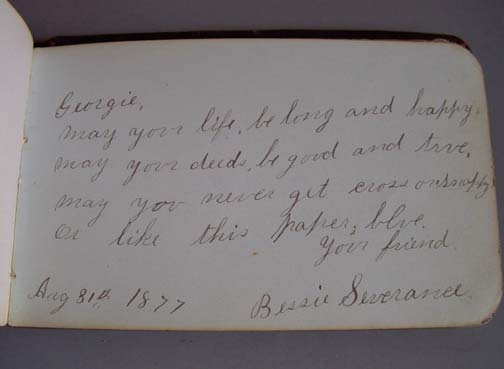 Georgie,
May your life, be long and happy,
May your deeds, be good and true,
May you never get cross or snappy
Or like this paper, blue.
Your friend.
Aug 31st 1877
Bessie Severance.